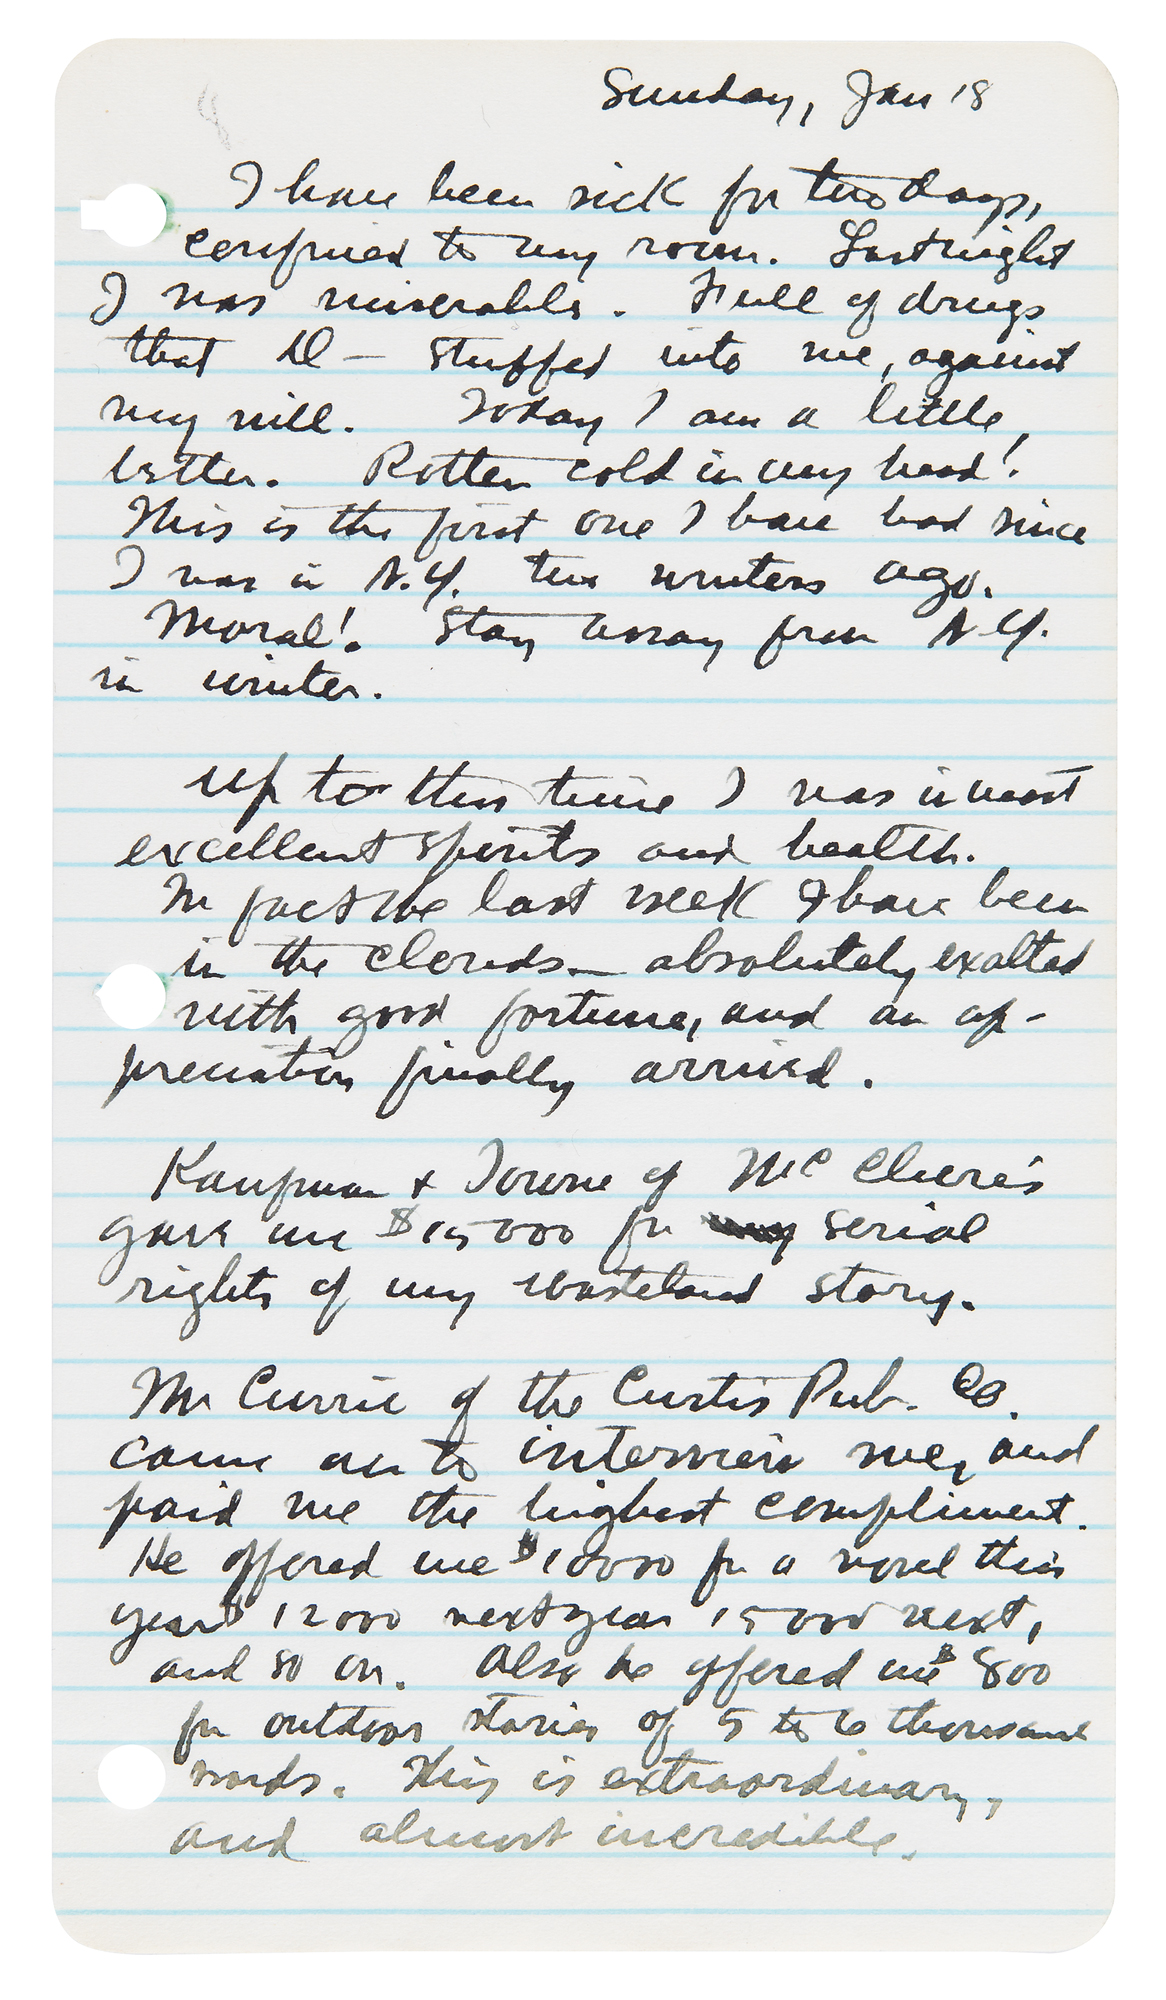 Sunday, Jan 18
I have been sick for two days,
confined to my room. Last night
I was miserable. Full of drugs
that D— stuffed into me, against
my will. Today I am a little
better. Rotten cold in my head!
This is the first one I have had since
I was in N.Y. two winters ago.
Moral! Stay away from N.Y.
in winter.
up to this time I was in most
excellent spirits and health.
In fact the last week I have been
in the clouds — absolutely exalted
with good fortune, and an ap-
preciation finally arrived.
Kaufman + Towne of McClure's
gave me $15000 for serial
rights of my wasteland story.
Mr Currie of the Curtis Pub. Co.
came on to interview me, and
paid me the highest compliment.
He offered me $10000 for a novel this
year $12000 next year 15000 next,
and so on. Also he offered me $800
for outdoor stories of 5 to 6 thousand
words. This is extraordinary,
and almost incredible.